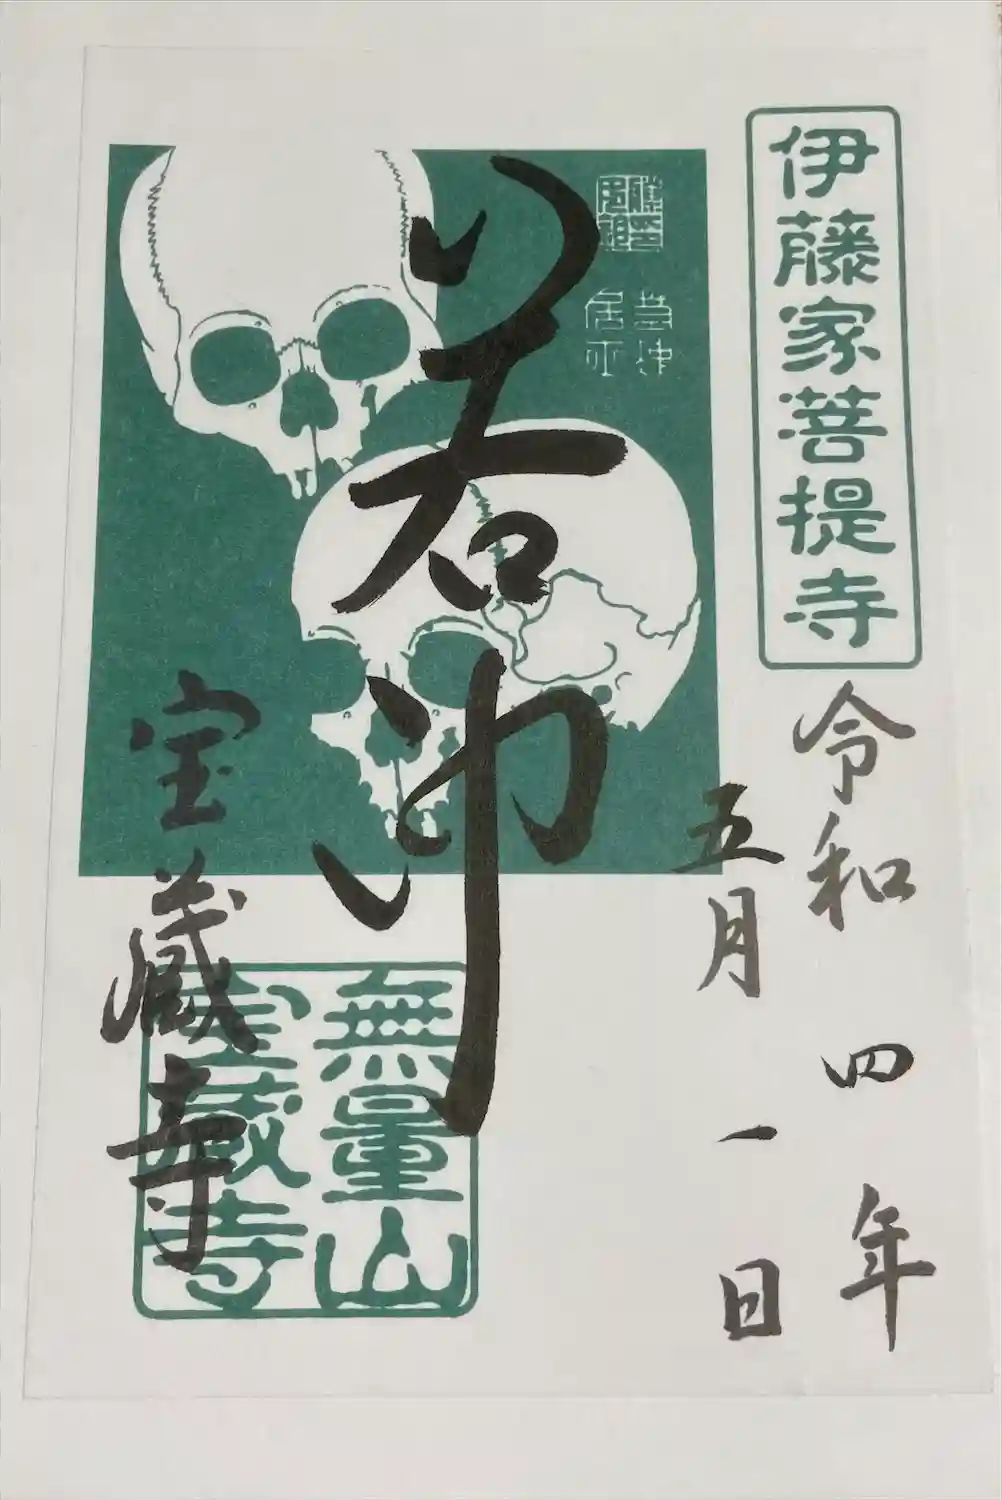 伊藤家菩提寺
令和四年
五月一日
若冲
宝蔵寺
無量山
宝蔵寺